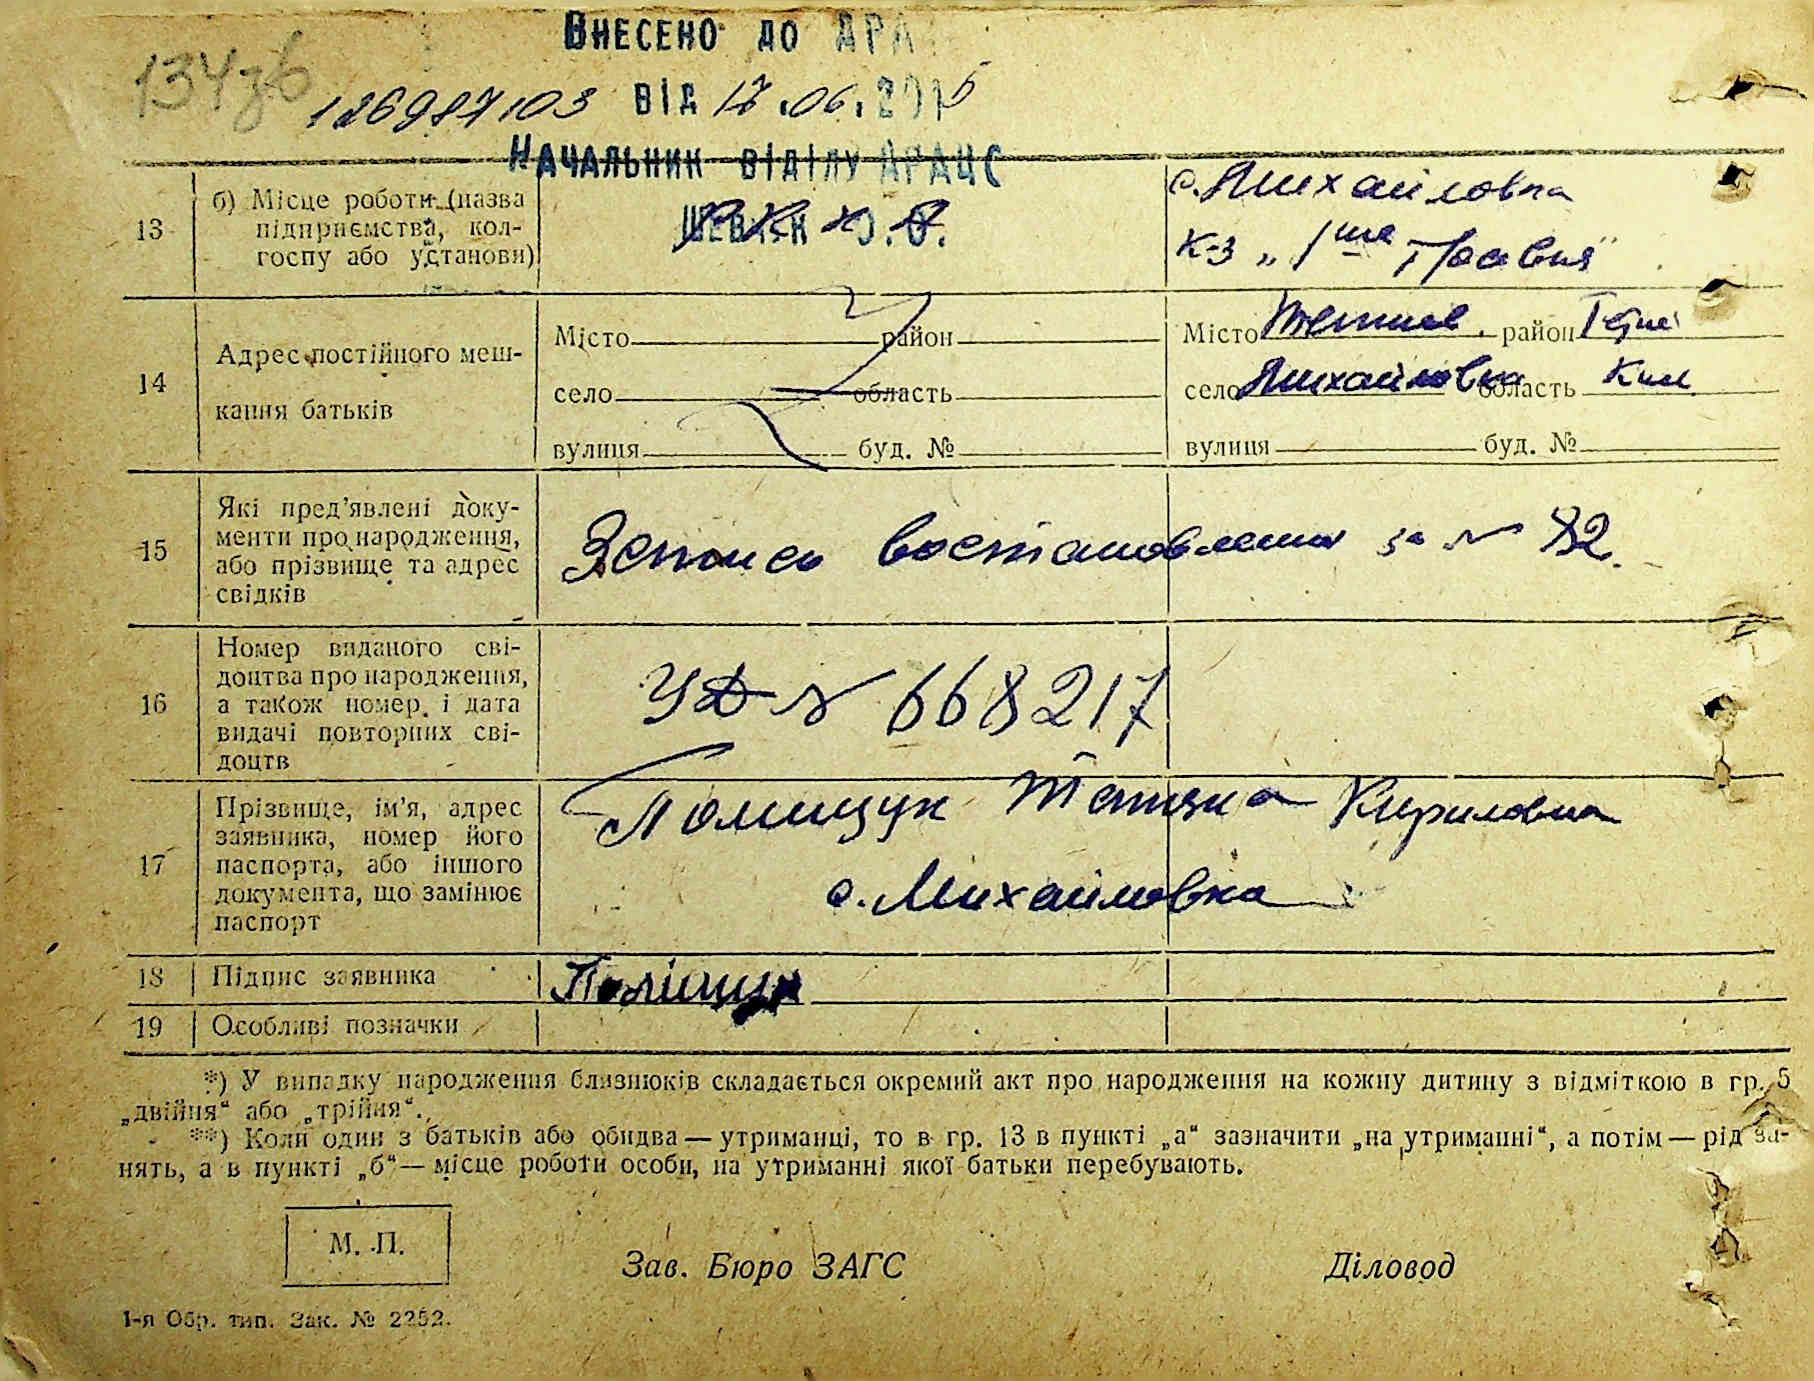 Внесено до ДРА
134зв
126987103 від 17.06.2015
Начальник відділу ДРАЦС
13
б) Місце роботи (назва
підприємства, кол-
госпу або установи)
с. Михайловка
К-з „1ше Травня"
14
Адрес постійного меш-
кання батьків
Місто район
село область
вулиця буд. №
Місто район
село Михайловка область
вулиця буд. №
15
Які пред'явлені доку-
менти про народження,
або прізвище та адрес
свідків
Запись востановления за № 82.
16
Номер виданого сві-
доцтва про народження,
а також номер і дата
видачі повторних сві-
доцтв
УД № 668217
17
Прізвище, ім'я, адрес
заявника, номер його
паспорта, або іншого
документа, що замінює
паспорт
Полищук Татяна Кириловна
с. Михайловка
18
Підпис заявника
Поліщук
19
Особливі позначки
*) У випадку народження близнюків складається окремий акт про народження на кожну дитину з відміткою в гр. 5
„двійня“ або „трійня“.
**) Коли один з батьків або обидва — утриманці, то в гр. 13 в пункті „а“ зазначити „на утриманні“, а потім — рід за-
нять, а в пункті „б“ — місце роботи особи, на утриманні якої батьки перебувають.
М. П.
Зав. Бюро ЗАГС
Діловод
1-я Обр. тип. Зак. № 2252.